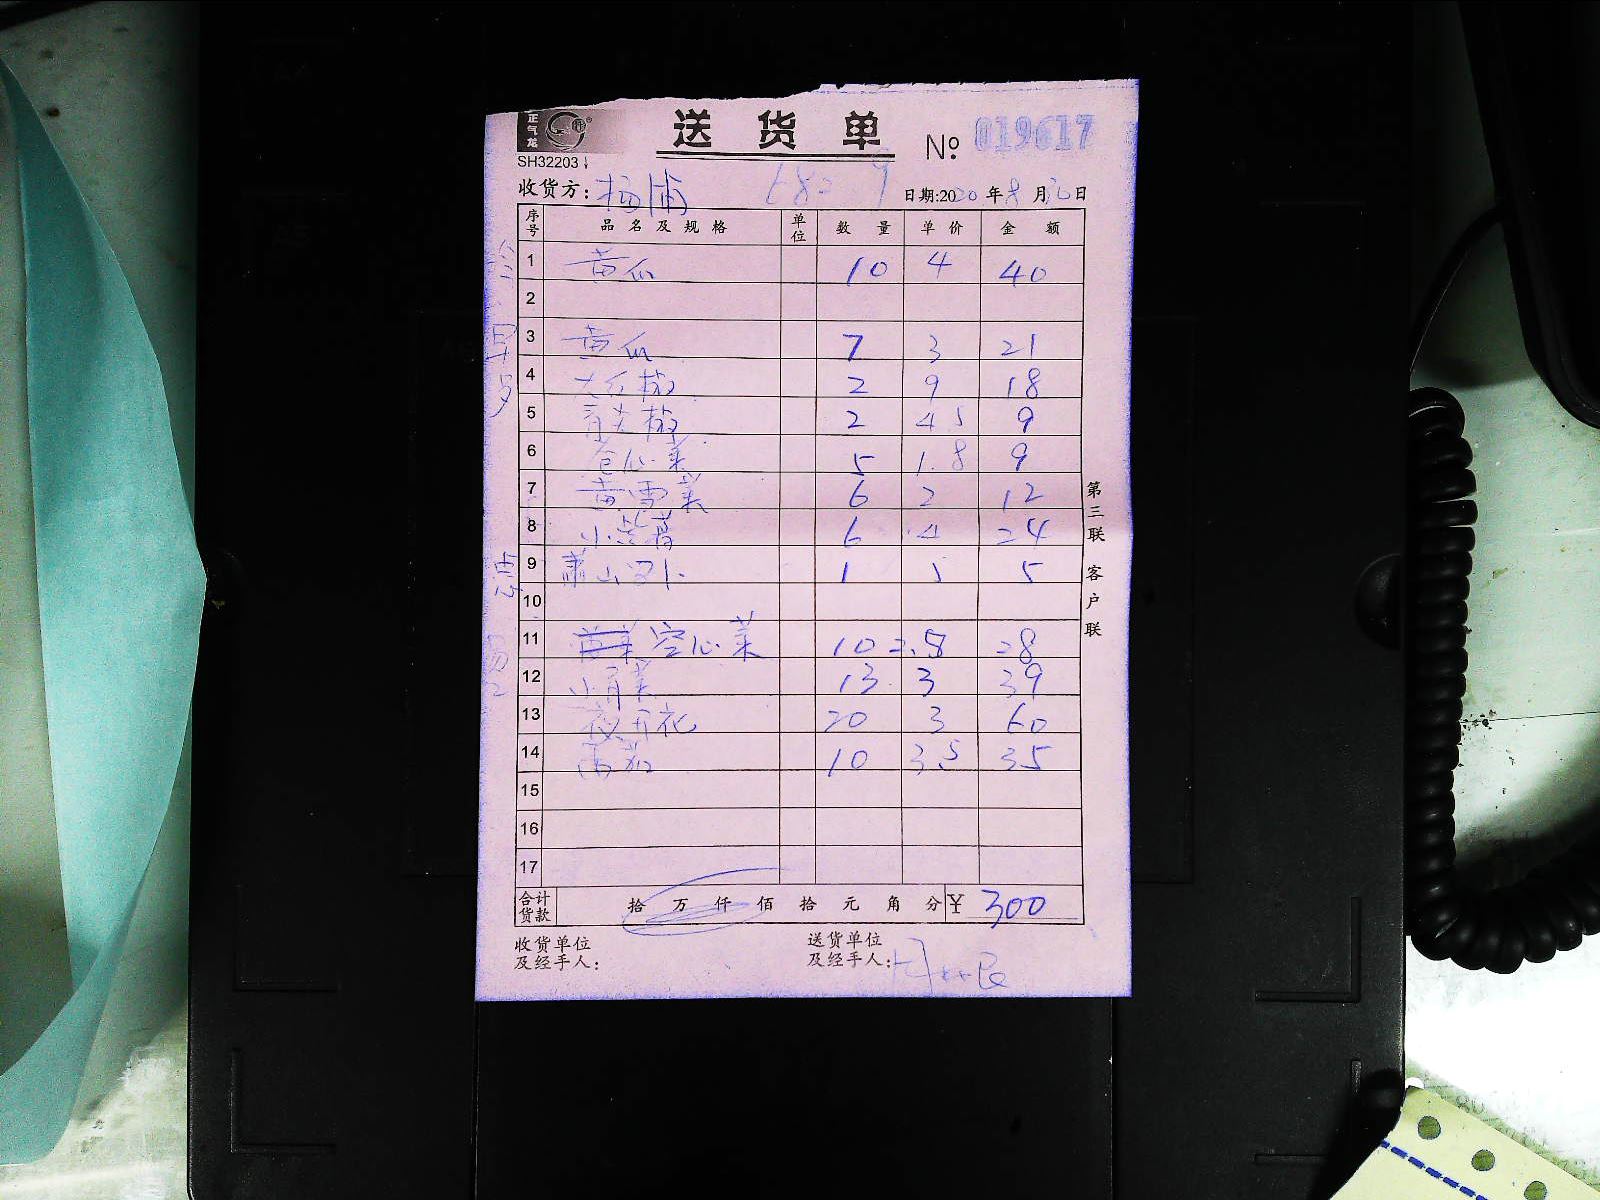 正气龙
送货单 № 019617
SH32203
收货方: 杨浦 日期:2020年8月 日
序号 品名及规格 单位 数量 单价 金额
1 黄瓜 10 4 40
2
3 黄瓜 7 3 21
4 大红椒 2 9 18
5 青尖椒 2 4.5 9
6 包心菜 5 1.8 9
7 黄雪菜 6 2 12
8 小紫薯 6 4 24
9 萧山罗卜 1 5 5
10
11 空心菜 10 2.8 28
12 小青菜 13 3 39
13 夜开花 20 3 60
14 番茄 10 3.5 35
15
16
17
合计货款 拾 万 仟 佰 拾 元 角 分 ¥ 300
收货单位及经手人: 送货单位及经手人:
第三联 客户联